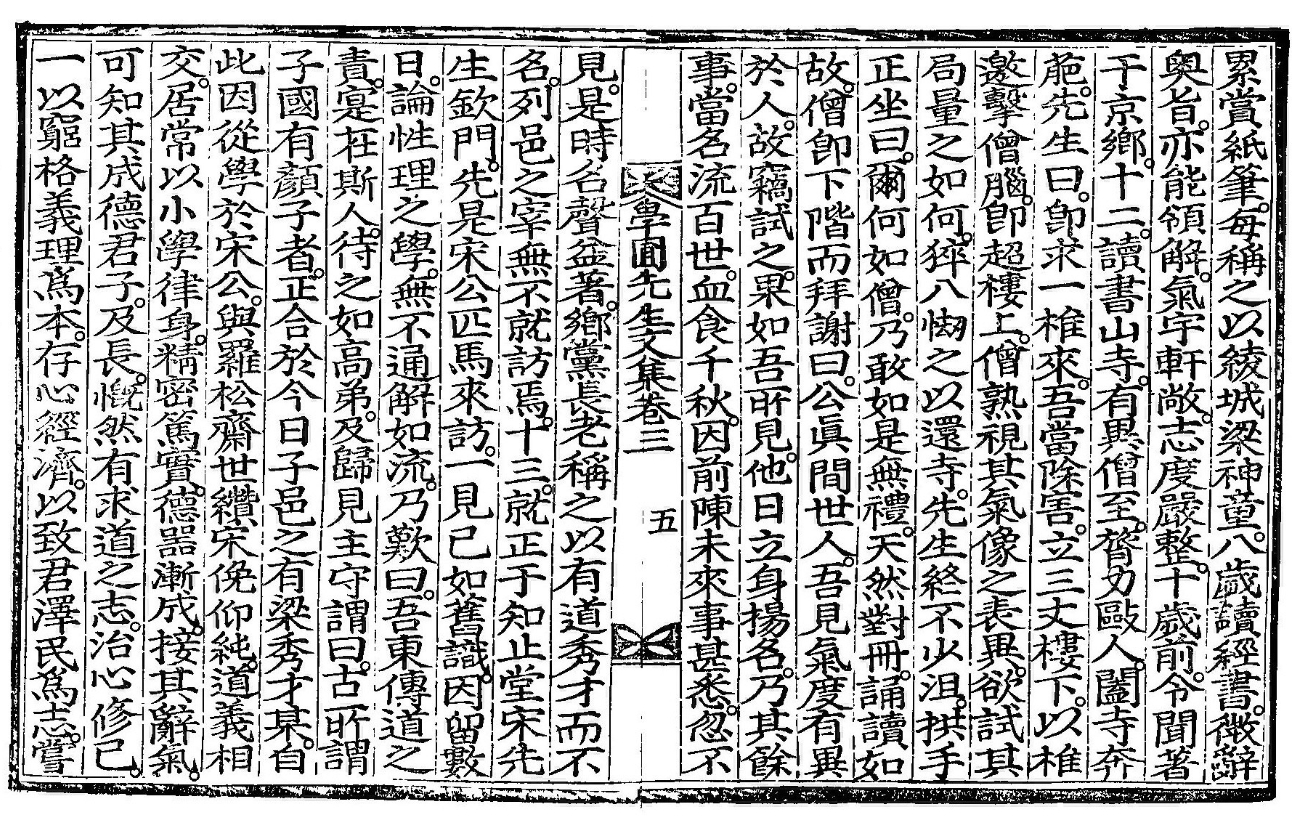 累賞紙筆。每稱之以綾城梁神童。八歲讀經書。微辭
奧旨。亦能領解。氣宇軒敞。志度嚴整。十歲前。令聞著
于京鄕。十二。讀書山寺。有異僧至。膂力毆人。闔寺奔
葩。先生曰。卽求一椎來。吾當除害。立三丈樓下。以椎
邀擊僧腦。卽超樓上。僧熟視其氣像之表異。欲試其
局量之如何。猝入㤼之以還寺。先生終不少沮。拱手
正坐曰。爾何如僧。乃敢如是無禮。天然對冊。誦讀如
故。僧卽下階而拜謝曰。公眞間世人。吾見氣度有異
於人。故竊試之。果如吾所見。他日立身揚名。乃其餘
事。當名流百世。血食千秋。因前陳未來事甚悉。忽不
學圃先生文集卷三 五
見。是時名聲益著。鄕黨長老稱之以有道秀才而不
名。列邑之宰無不就訪焉。十三。就正于知止堂宋先
生欽門。先是宋公匹馬來訪。一見已如舊識。因留數
日。論性理之學。無不通解如流。乃歎曰。吾東傳道之
責。寔在斯人。待之如高弟。及歸見主守謂曰。古所謂
子國有顏子者。正合於今日子邑之有梁秀才某。自
此因從學於宋公。與羅松齋世纘宋俛仰純。道義相
交。居常以小學律身。精密篤實。德器漸成。接其辭氣。
可知其成德君子。及長。慨然有求道之志。治心修己。
一以窮格義理爲本。存心經濟。以致君澤民爲志。嘗